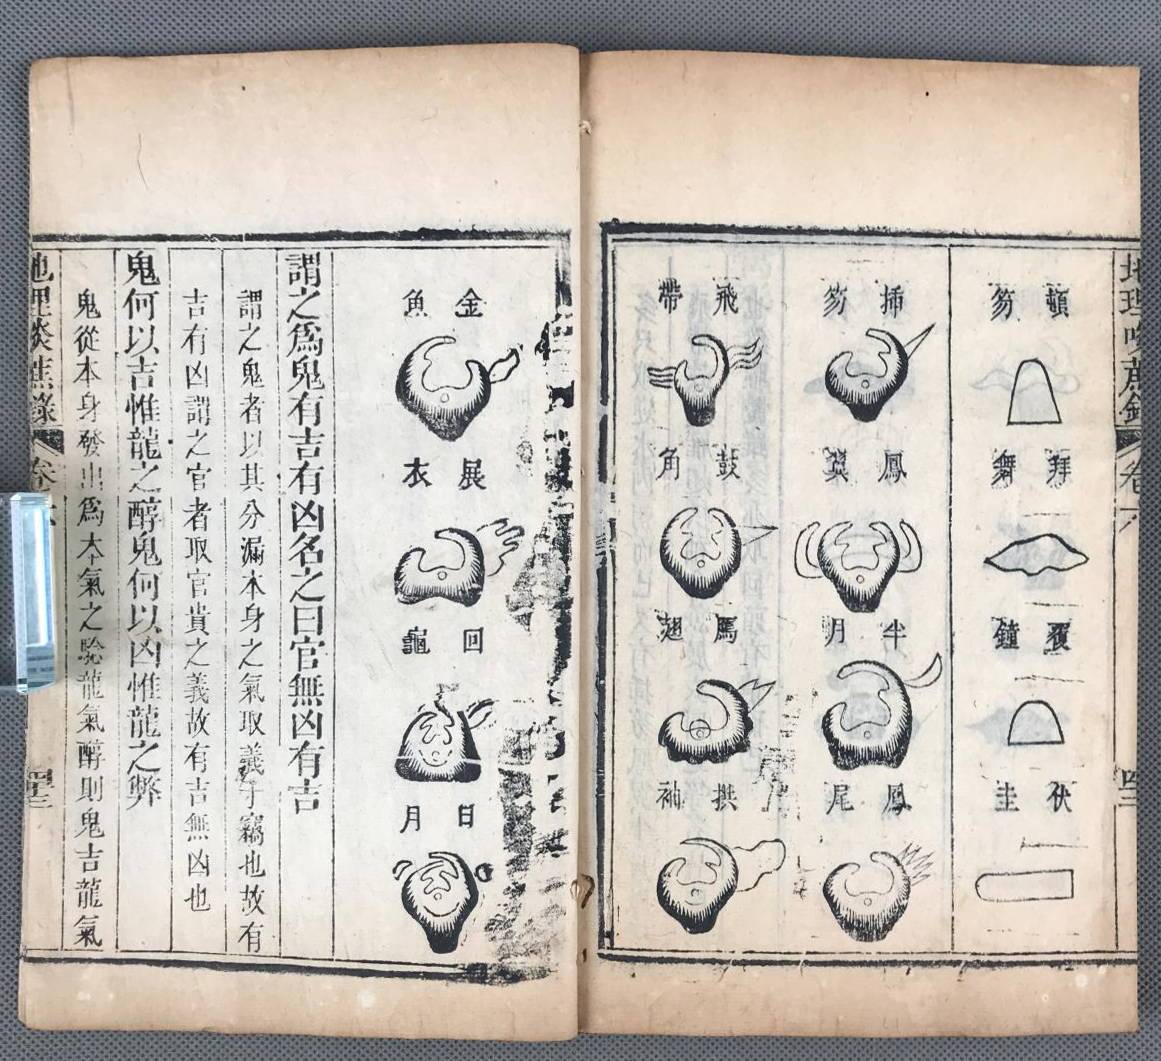 地理啖蔗錄 卷
頓笏
拜舞
覆鐘
伏圭
插笏
鳳翼
半月
鳳尾
飛帶
鼓角
馬
拱袖
金魚
展衣
回龜
日月
謂之爲鬼有吉有凶名之曰官無凶有吉
謂之鬼者以其分漏本身之氣取義于竊也故有
吉有凶謂之官者取官貴之義故有吉無凶也
鬼何以吉惟龍之醇鬼何以凶惟龍之弊
鬼從本身發出爲本氣之騐龍氣醇則鬼吉龍氣
地理啖蔗錄 卷